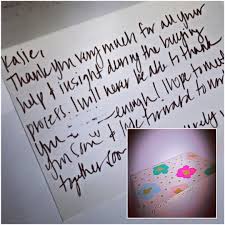 Katie,
Thank you very much for all your
help & insight during the buying
process. I will never be able to thank
you enough! Hope to meet
you soon & look forward to
together